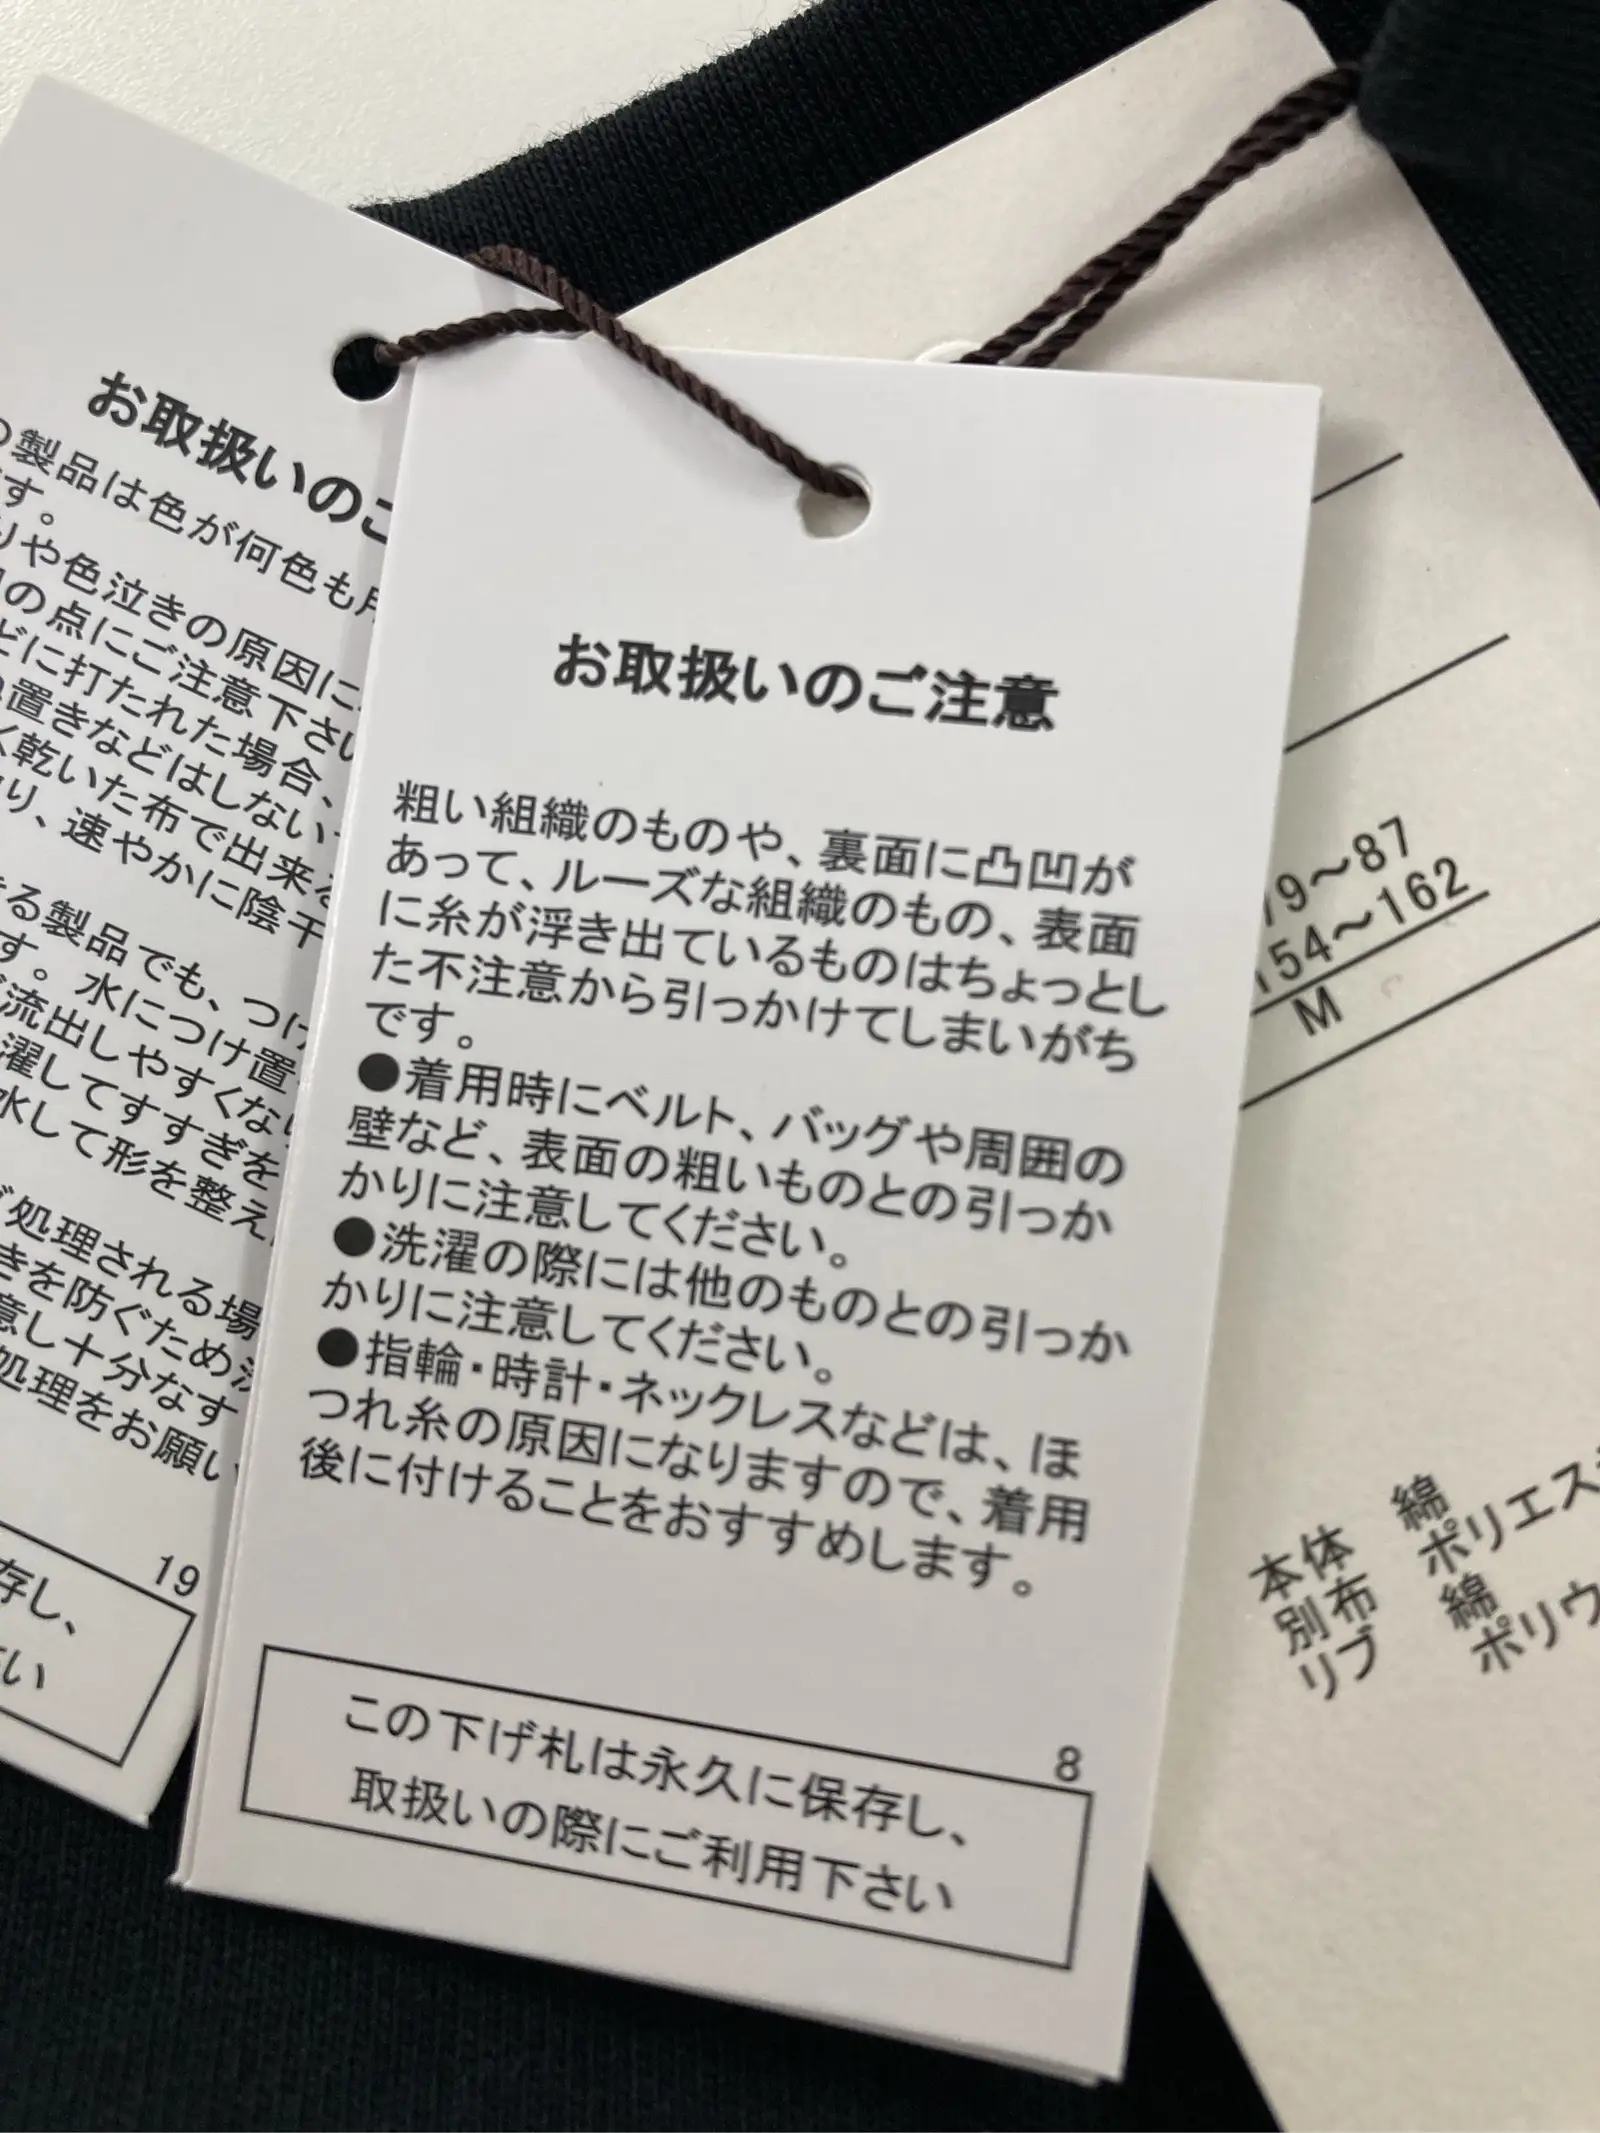 お取扱いのご
の製品は色が何色も
す。
りや色泣きの原因に
の点にご注意下さい
どに打たれた場合、
置きなどはしない
く乾いた布で出来る
り、速やかに陰干
ける製品でも、つけ
す。水につけ置
流出しやすくな
濯してすすぎを
水して形を整え
処理される場
きを防ぐため
意し十分なす
処理をお願い
19
存し、
さい
お取扱いのご注意
粗い組織のものや、裏面に凸凹が
あって、ルーズな組織のもの、表面
に糸が浮き出ているものはちょっとし
た不注意から引っかけてしまいがち
です。
●着用時にベルト、バッグや周囲の
壁など、表面の粗いものとの引っか
かりに注意してください。
●洗濯の際には他のものとの引っか
かりに注意してください。
●指輪・時計・ネックレスなどは、ほ
つれ糸の原因になりますので、着用
後に付けることをおすすめします。
8
この下げ札は永久に保存し、
取扱いの際にご利用下さい
79～87
154～162
M
本体 綿
別布 ポリエス
リブ 綿
ポリウ